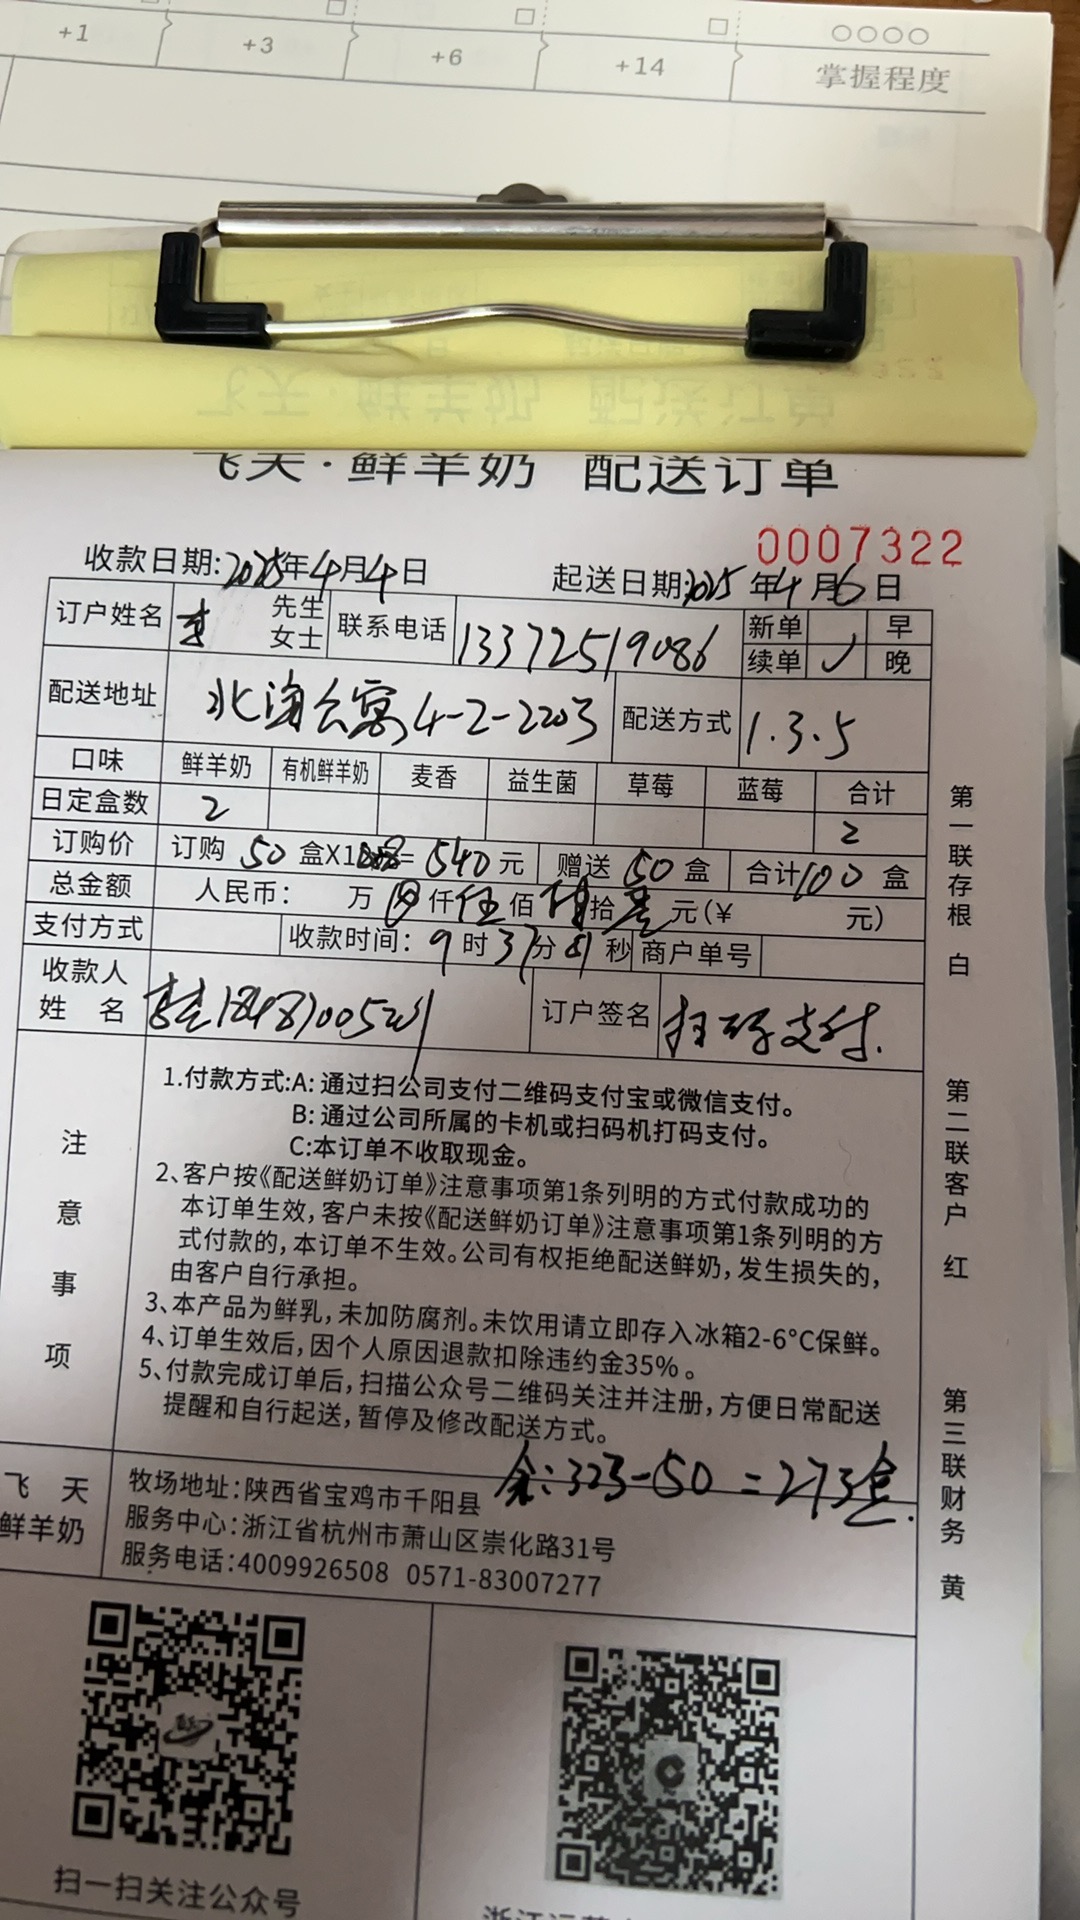 +1 +3 +6 +14 ○○○○
掌握程度
飞天·鲜羊奶 配送订单
0007322
收款日期:2025年4月4日 起送日期:2025年4月6日
订户姓名 李 先生 女士 联系电话 13372519086 新单 早
续单 ✓ 晚
配送地址 北海公寓4-2-2203 配送方式 1.3.5
口味 鲜羊奶 有机鲜羊奶 麦香 益生菌 草莓 蓝莓 合计
日定盒数 2 2
订购价 订购 50 盒X1 = 540 元 赠送 50 盒 合计100 盒
总金额 人民币: 万 仟伍佰 拾 元(¥ 元)
支付方式 收款时间: 9时37分 秒 商户单号
收款人
姓 名 订户签名 扫码支付.
注意事项
1.付款方式:A:通过扫公司支付二维码支付宝或微信支付。
B:通过公司所属的卡机或扫码机打码支付。
C:本订单不收取现金。
2、客户按《配送鲜奶订单》注意事项第1条列明的方式付款成功的
本订单生效,客户未按《配送鲜奶订单》注意事项第1条列明的方
式付款的,本订单不生效。公司有权拒绝配送鲜奶,发生损失的,
由客户自行承担。
3、本产品为鲜乳,未加防腐剂。未饮用请立即存入冰箱2-6°C保鲜。
4、订单生效后,因个人原因退款扣除违约金35%。
5、付款完成订单后,扫描公众号二维码关注并注册,方便日常配送
提醒和自行起送,暂停及修改配送方式。
余:323-50=273盒.
飞 天
鲜羊奶
牧场地址:陕西省宝鸡市千阳县
服务中心:浙江省杭州市萧山区崇化路31号
服务电话:4009926508 0571-83007277
第一联存根 白
第二联客户 红
第三联财务 黄
扫一扫关注公众号